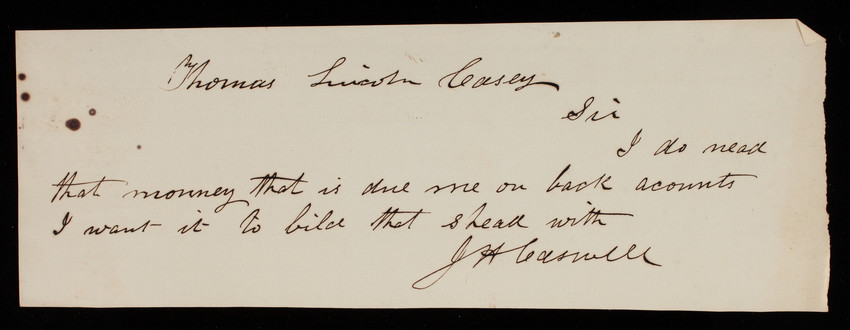 Thomas Lincoln Casey
Sir
I do nead
that monney that is due me on back acounts
I want it to bild that shead with
J H Caswell